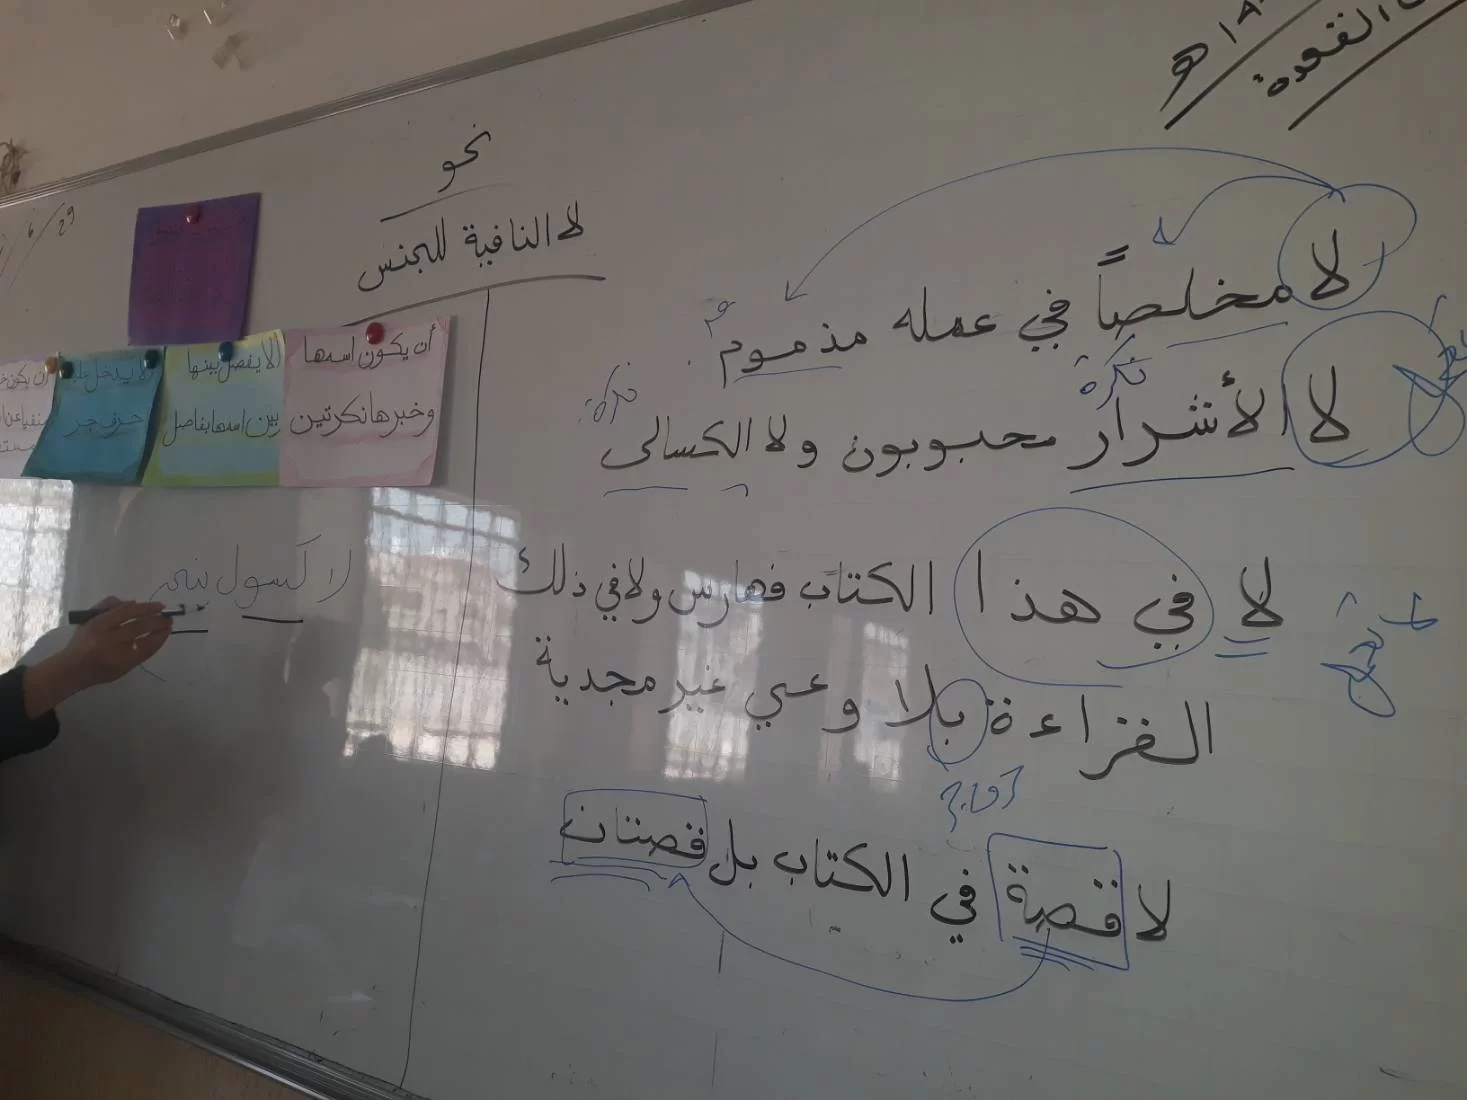 القعدة
١٨ هـ
29/6/
نحو
لا النافية للجنس
لا مخلصاً في عمله مذموم
نكرة
لا الأشرار محبوبون ولا الكسالى
لا في هذا الكتاب فهارس ولا في ذلك
القراءة بلا وعي غير مجدية
لا قصة في الكتاب بل قصتان
أن يكون اسمها
وخبرها نكرتين
ألا يفصل بينها
بين اسمها بفاصل
حرف جر
لا كسول